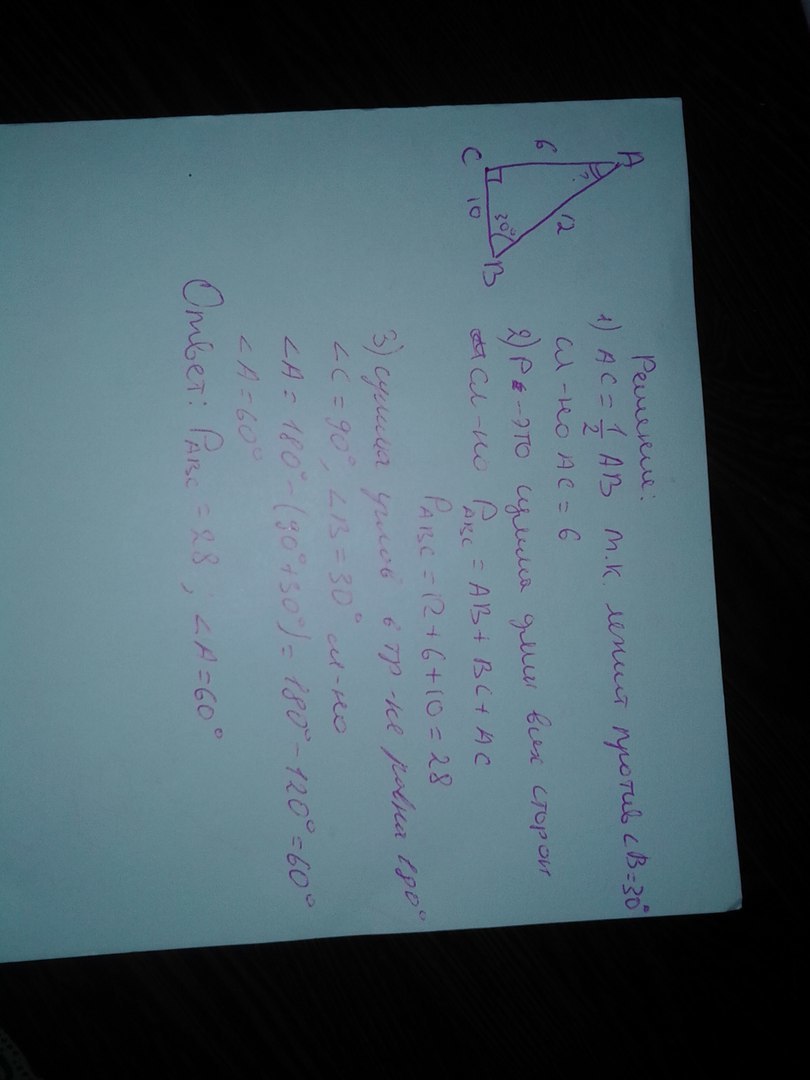 A
6
?
12
C
10
30°
B
Решение:
1) AC = 1/2 AB т.к лежит против ∠B=30°
сл-но AC = 6
2) P - это сумма длин всех сторон
сл-но P ABC = AB + BC + AC
P ABC = 12 + 6 + 10 = 28
3) сумма углов в тр-ке равна 180°
∠C = 90°, ∠B = 30° сл-но
∠A = 180° - (90° + 30°) = 180° - 120° = 60°
∠A = 60°
Ответ: P ABC = 28 ; ∠A = 60°